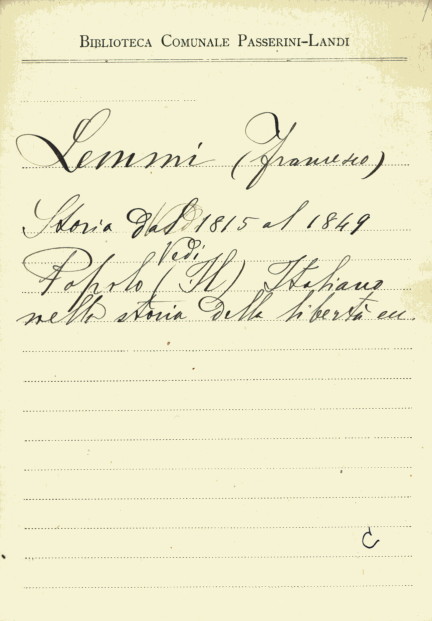 BIBLIOTECA COMUNALE PASSERINI-LANDI
Lemmi (Francesco)
Storia dal 1815 al 1849
Vedi
Popolo (Il) Italiano
nella storia della libertà eu.
C